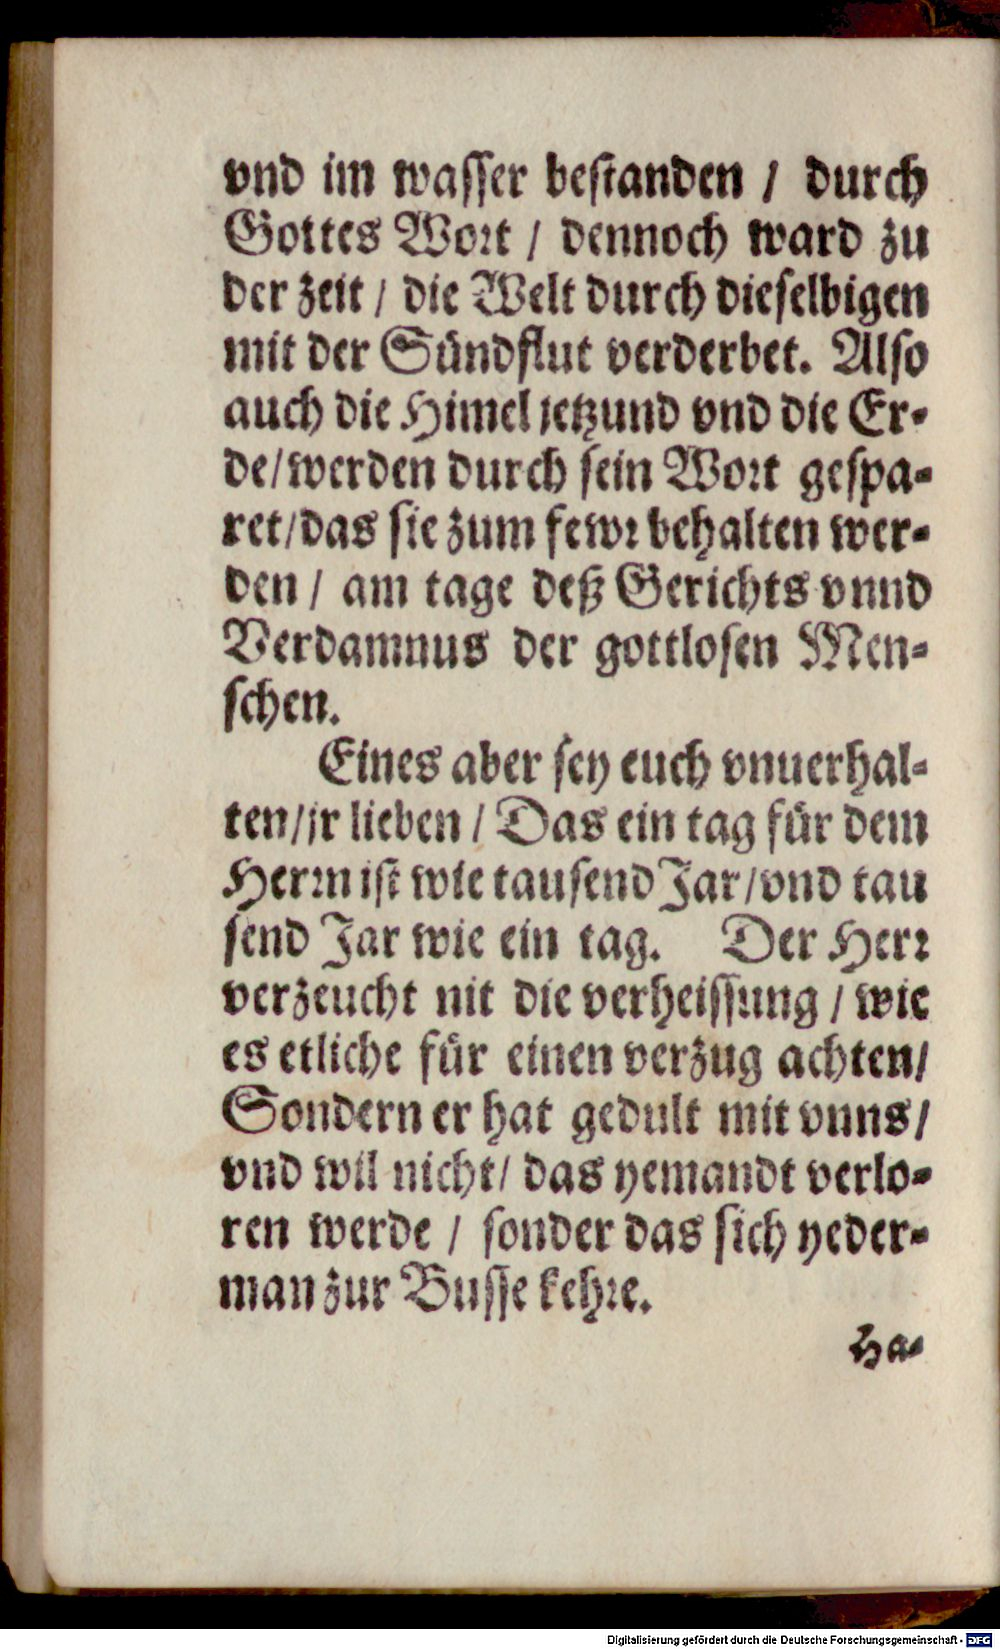 vnd im wasser bestanden / durch
Gottes Wort / dennoch ward zu
der zeit / die Welt durch dieselbigen
mit der Sündflut verderbet. Also
auch die Himel jetzund vnd die Er-
de/werden durch sein Wort gespa-
ret/das sie zum fewr behalten wer-
den / am tage deß Gerichts vnnd
Verdamnus der gottlosen Men-
schen.
Eines aber sey euch vnuerhal-
ten/jr lieben / Das ein tag für dem
Herrn ist wie tausend Jar/vnd tau
send Jar wie ein tag. Der Herr
verzeucht nit die verheissung / wie
es etliche für einen verzug achten/
Sondern er hat gedult mit vnns/
vnd wil nicht/ das yemandt verlo-
ren werde / sonder das sich yeder-
man zur Busse kehre.
Ha-
Digitalisierung gefördert durch die Deutsche Forschungsgemeinschaft - DFG